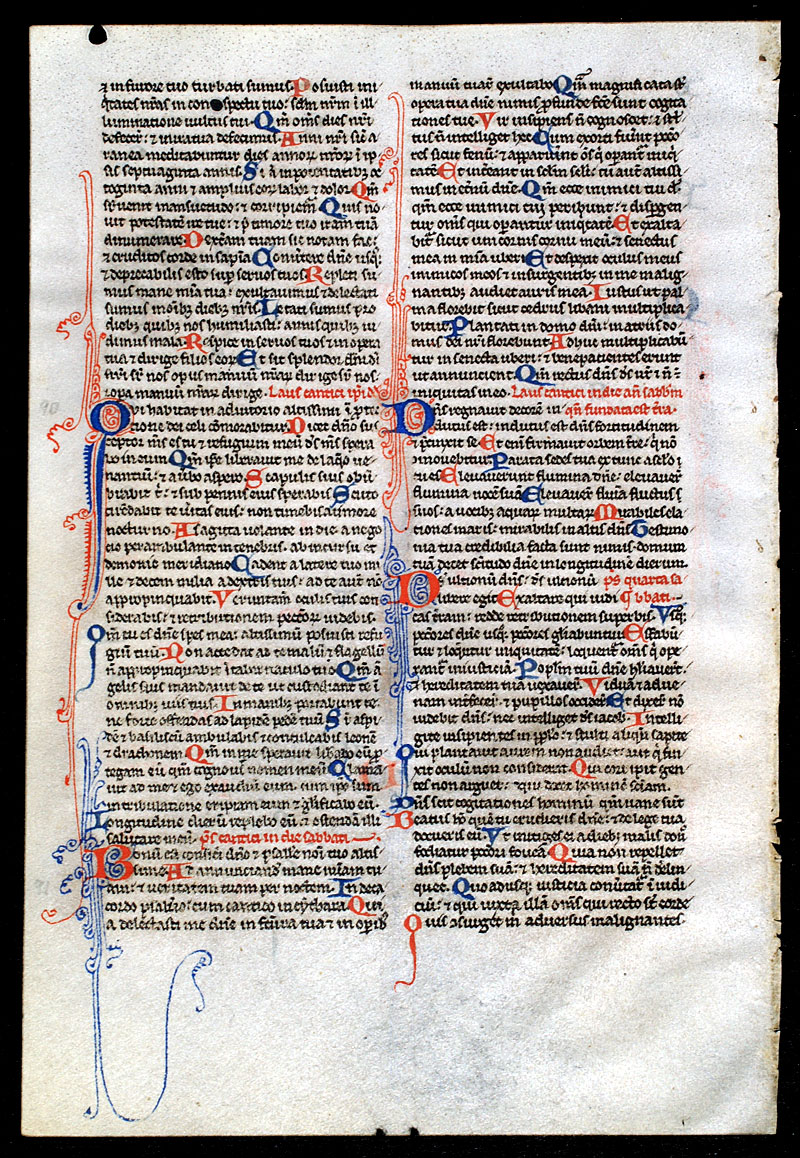 ⁊ in furore tuo turbati sumus. Posuisti ini
q̇tates nr̄as in conspectu tuo: sclm̄ nr̄m i ill
luminatione vultus tui. Qm̄ om̄s dies nr̄i
defecer̄: ⁊ in ira tua defecimus. Anni nr̄i sic̄ a
ranea meditabuntur dies annoꝝ nr̄oꝝ i ip̄
sis septuaginta annis. Si ā in potentatibꝫ oc
toginta anni ⁊ amplius eoꝝ labor ⁊ dolor. Qm̄
suꝑvenit mansuetudo: ⁊ corripiem̄. Quis no
vit potestatē ire tue: ⁊ p̄ timore tuo iram tuā
dinumerare. Dexteram tuam sic notam fac:
⁊ eruditos corde in sap̄ia. Convertere dn̄e usq̄ꝫ
⁊ deprecabilis esto sup̄ servos tuos. Repleti su
mus mane mīa tua: exultavimus ⁊ delectati
sumus om̄ibꝫ diebꝫ nr̄is. Letati sumus pro
diebꝫ quibꝫ nos humiliasti: annis quibꝫ vi
dimus mala. Respice in servos tuos ⁊ in opera
tua ⁊ dirige filios eoꝝ. Et sit splendor dn̄i di
nr̄i sꝑ nos ⁊ opus manuū nr̄aꝝ dirige sꝑ nos
⁊ opa manuū nr̄aꝝ dirige. Laus cantici ip̄i dd
Qui habitat in adiutorio altissimi ī ptec
tione dei celi commorabitur. Dicet dn̄o sus
ceptor m̄s es tu ⁊ refugium meū ds̄ m̄s spera
bo in eum. Qm̄ ip̄e liberavit me de laq̄o ve
nantiū: ⁊ a vbo aspero. Scapulis suis obū
brabit t̄: ⁊ sub pennis eius sperabis. Scuto
circūdabit te v̄itas eius: non timebis a timore
nocturno. A sagitta volante in die a nego
cio perambulante in tenebris: ab incursu ⁊
demonio meridiano. Cadent a latere tuo mi
lle ⁊ decem milia a dextris tuis: ad te aut̄ nō
appropinquabit. Verūtam̄ oculis tuis con
siderabis: ⁊ retributionem peccatoꝝ videbis.
Qm̄ tu es dn̄e spes mea: altissimū posuisti refu
gium tuū. Non accedat ad te malū: ⁊ flagellū
n̄ appropinquabit tabernaculo tuo. Qm̄ ā
gelis suis mandavit de te ut custodiant te ī
omnibꝫ viis tuis. In manibꝫ portabunt te:
ne forte offendas ad lapidē pedē tuū. Sꝑ aspi
dē ⁊ basiliscū ambulabis ⁊ conculcabis leonē
⁊ draconem. Qm̄ in me speravit libabo eū p
tegam eū qm̄ cognovit nomen meū. Clama
vit ad me ⁊ ego exaudiā eum. cum ip̄o sum
in tribulatione eripiam eum ⁊ gl̄ificabo eū.
Longitudine dierū replebo eū: ⁊ ostendā illi
salutare meū. ps̄ cantici in die sabbati
Bonū est confiteri dn̄o ⁊ psallere nōi tuo altis
sime. Ad annunciandū mane mīam tu
am: ⁊ veritatem tuam per noctem. In deca
cordo psalt̄io: cum cantico in cythara. Qui
a delectasti me dn̄e in f̄cura tua ⁊ in opibꝫ
manuū tuaꝝ exultabo. Qm̄ magnificata st̄
opera tua dn̄e nimis pfunde f̄ce sunt cogita
tiones tue. Vir insipiens n̄ cognoscet: ⁊ stl̄
tus n̄ intelliget hec. Cum exorti fuūnt pccō
res sicut fenū: ⁊ apparuint om̄s q̇ opant̄ iniq̇
tatē. Et intereant in sclm̄ scl̄i: tu aut̄ altissi
mus in etn̄ū dn̄e. Qm̄ ecce inimici tui d̄
qm̄ ecce inimici tui peribunt: ⁊ dispgen
tur om̄s qui opantur iniquitatē. Et exalta
bit̄ sicut unicornis cornu meū: ⁊ senectus
mea in mīa uberi. Et despexit oculus meus
inimicos meos: ⁊ insurgentibꝫ in me malig
nantibꝫ audiet auris mea. Iustus ut pal
ma florebit sicut cedrus libani multiplica
bitur. Plantati in domo dn̄i: in atriis do
mus dei nr̄i florebunt. Adhuc multiplicabū
tur in senecta uberi: ⁊ bene pacientes erunt
ut annuncient. Qm̄ rectus dn̄s ds̄ nr̄ ⁊ n̄ ē
iniquitas in eo. Laus cantici in die an̄ sabbm̄
Dn̄s regnavit decorem in qn̄ fundata est tra.
dutus est: indutus est dn̄s fortitudinem
⁊ p̄cinxit se. Et eni firmavit orbem tre: q̇ nō
movebitur. Parata sedes tua ex tunc a sclo tu
es. Elevaverunt flumina dn̄e: elevaver̄
flumina vocē suā. Elevaver̄ flumīa fluctus s
suos: a vocibꝫ aquaꝝ multaꝝ. Mirabiles ela
tiones maris: mirabilis in altis dn̄s. Testimo
nia tua credibilia facta sunt nimis: domum
tuā decet sc̄itudo dn̄e in longitudinē dierum.
Ds̄ ultionū dn̄s: ds̄ ultionū ps̄ quarta sa
libere egit. Exaltare qui iudi bbati
cas tram: redde retributionem superbis. Usq̄ꝫ
pccōres dn̄e usq̄ꝫ pccōres gl̄iabuntur. Effabū
tur ⁊ loq̄ntur iniquitatē: loquent̄ om̄s q̇ ope
rant̄ iniusticiā. Popl̄m tuū dn̄e hūiliaver̄:
⁊ hereditatem tuā vexaver̄. Viduā ⁊ adve
nam intfecer̄: ⁊ pupillos occider̄. Et dixer̄ nō
videbit dn̄s: nec intelliget ds̄ iacob. Intelli
gite insipientes in pplo: ⁊ stulti aliqn̄ sapite
Qui plantavit aurem non audiet: aut q̇ fin
xit oculū non considerat. Qui corripit gen
tes non arguet: ⁊ qui docet hominē sciam.
Dn̄s scit cogitationes hominū qm̄ vane sūt
Beatus hō quē tu erudieris dn̄e: ⁊ de lege tua
docueris eū. Ut mitiges ei a diebꝫ malis don̄
fodiatur pccōri fovea. Quia non repellet
dn̄s plebem suā: ⁊ hereditatem suā n̄ delin
quet. Quoadusq̄ꝫ iusticia conv̄tat̄ ī iudi
ciū: ⁊ qui iuxta illā om̄s qui recto st̄ corde
Quis ꝯsurget m̄ adversus malignantes